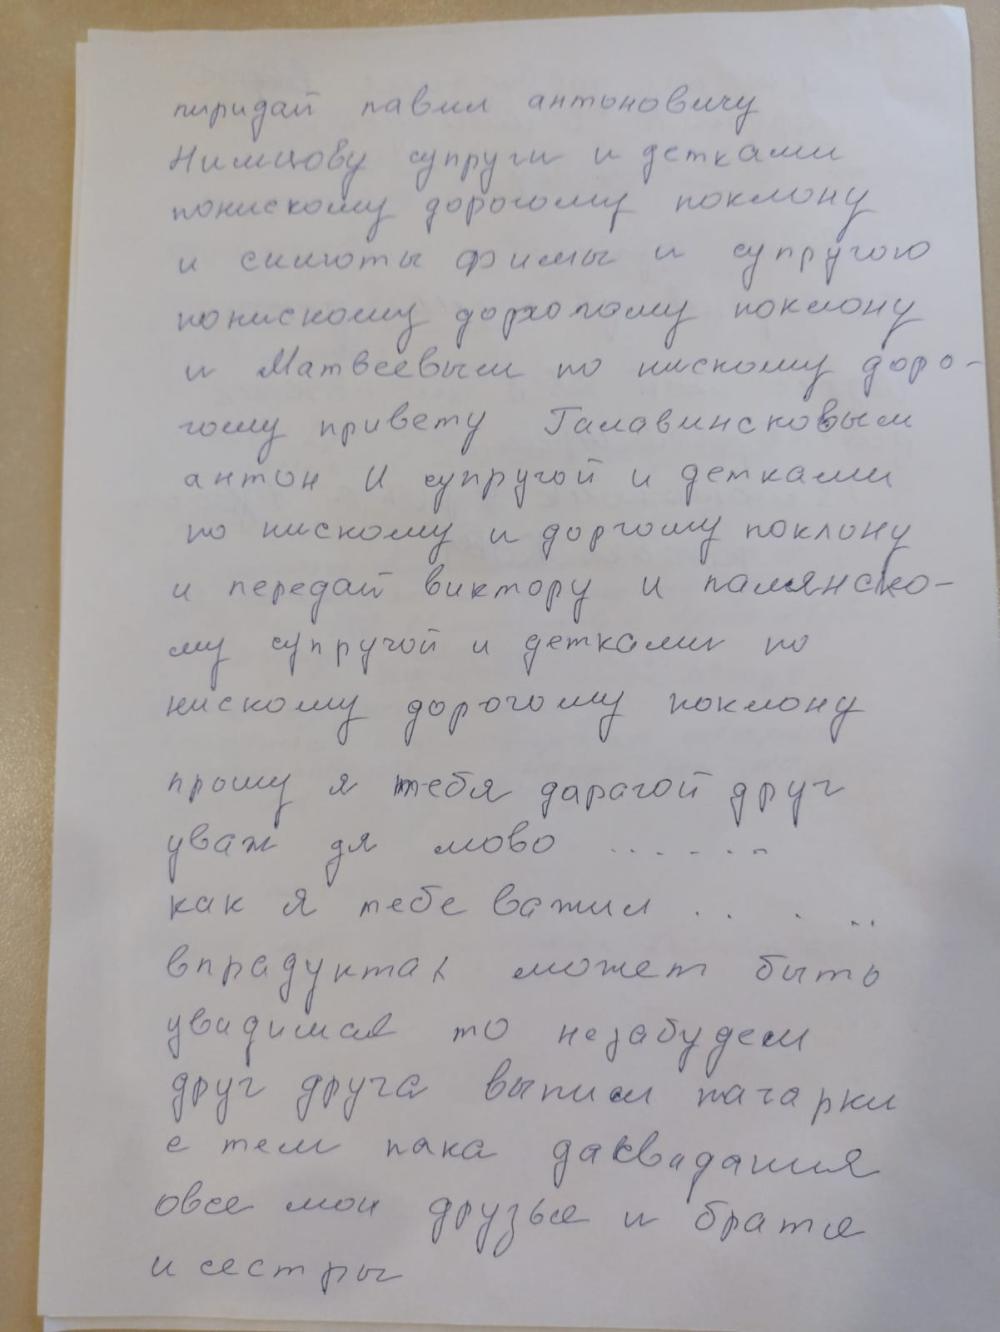 пиридай павил антоновичу
Нимцову супруги и детками
понискому дорогому поклону
и симоты фимы и супругою
понискому дорхогому поклону
и Матвеевым по нискому доро-
гому привету Галавинсковым
антон И супругой и детками
по нискому и доргому поклону
и передай виктору и памянско-
му супругой и детками по
нискому дорогому поклону
прошу я тебя дарагой друг
уваж дя мово ......
как я тебе важил .. . ..
впрадуктах может быть
увидимся то незабудем
друг друга выпим пачарки
с тем пака даквидания
овсе мои друзья и братя
и сестры